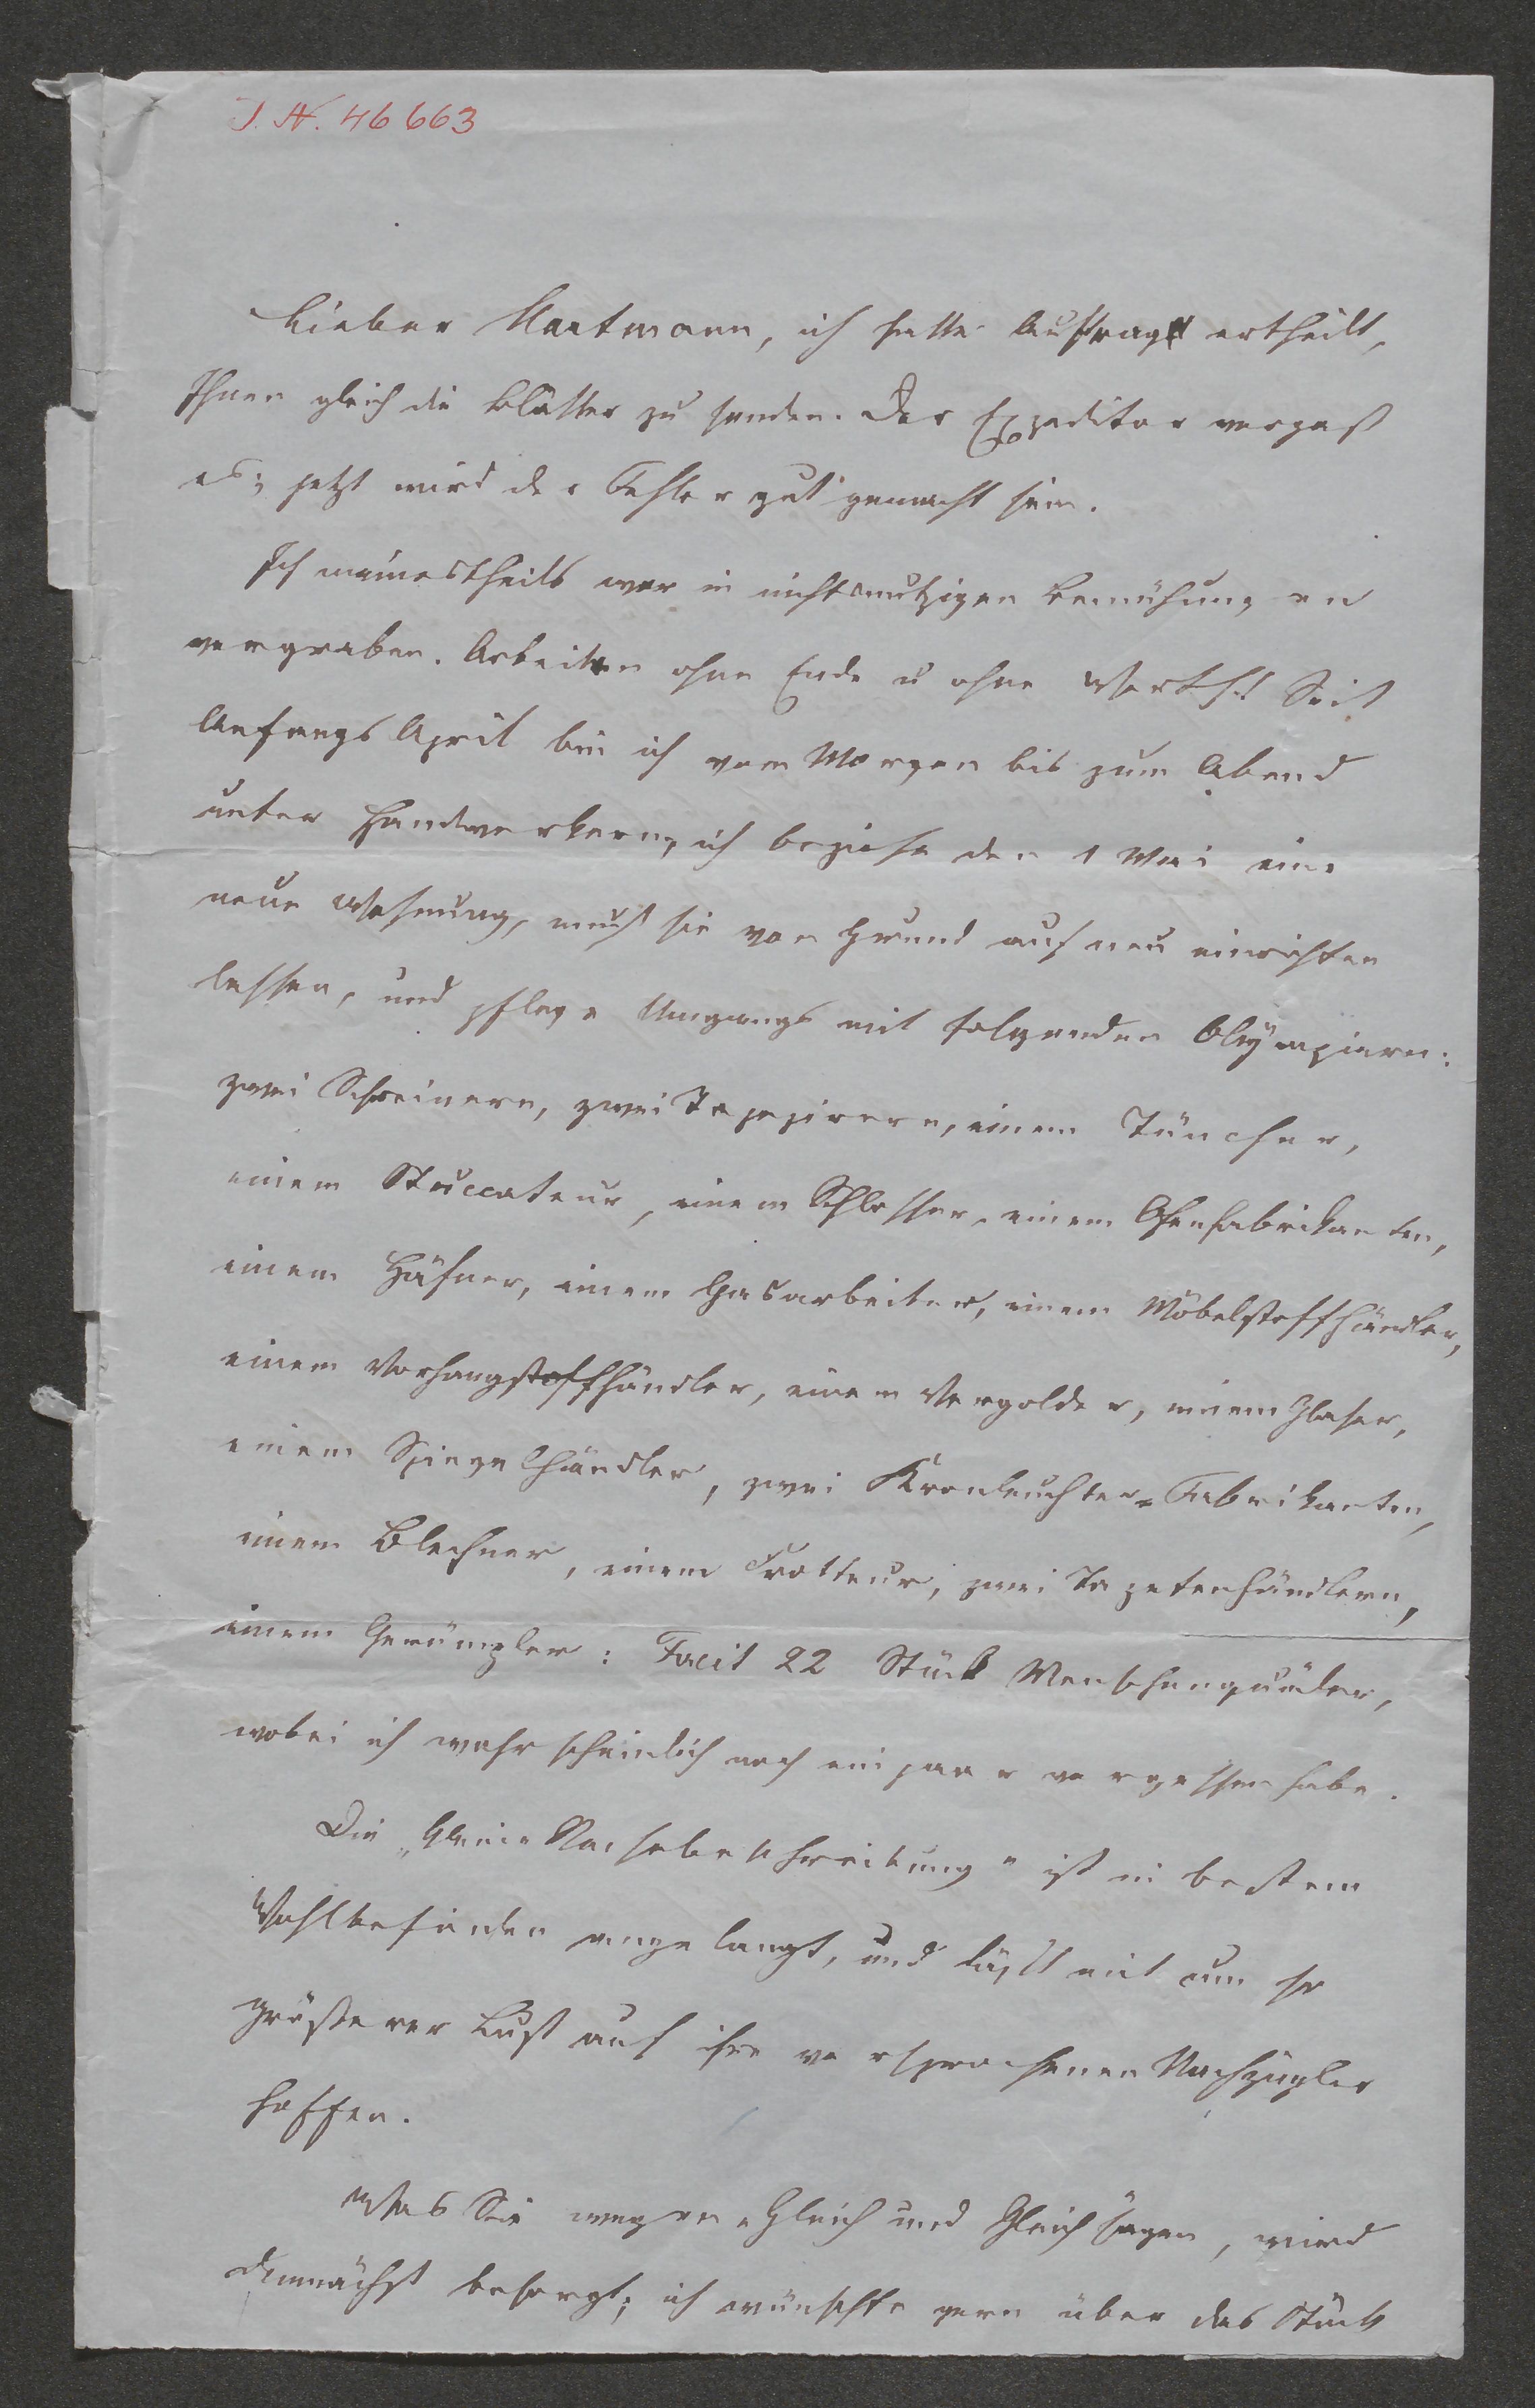 J. N. 46663
Lieber Hartmann, ich hatte Auftrag ertheilt,
Ihnen gleich die Blätter zu senden. Der Expeditor vergaß
es; jetzt wird der Fehler gut gemacht sein.
Ich meinestheils war in nichtsnutzigen Bemühungen
vergraben. Arbeiten ohne Ende u ohne Werth! Seit
Anfangs April bin ich vom Morgen bis zum Abend
unter Handwerkern, ich beziehe den 1 Mai eine
neue Wohnung, muß sie von Grund auf neu einrichten
lassen, und pflege Umgangs mit folgenden Olympiern:
zwei Schreinern, zwei Tapezirern, einem Tüncher,
einem Stuccateur, einem Schlosser, einem Ofenfabrikanten,
einem Häfner, einem Gasarbeiter, einem Möbelstoffhändler,
einem Vorhangstoffhändler, einem Vergolder, einem Glaser,
einem Spiegelhändler, zwei Kronleuchter-Fabrikanten,
einem Blechner, einem Frotteur, zwei Tapetenhändlern,
einem Gerümpler: Facit 22 Stück Menschenquäler,
wobei ich wahrscheinlich noch ein paar vergessen habe.
Die „kleine Nachbeschreibung" ist in bestem
Wohlbefinden angelangt, und läßt mit um so
größerer Lust auf ihre versprochenen Nachzügler
hoffen.
Was Sie wegen „Gleich und Gleich" sagen, wird
demnächst besorgt; ich wünschte gern über das Stück